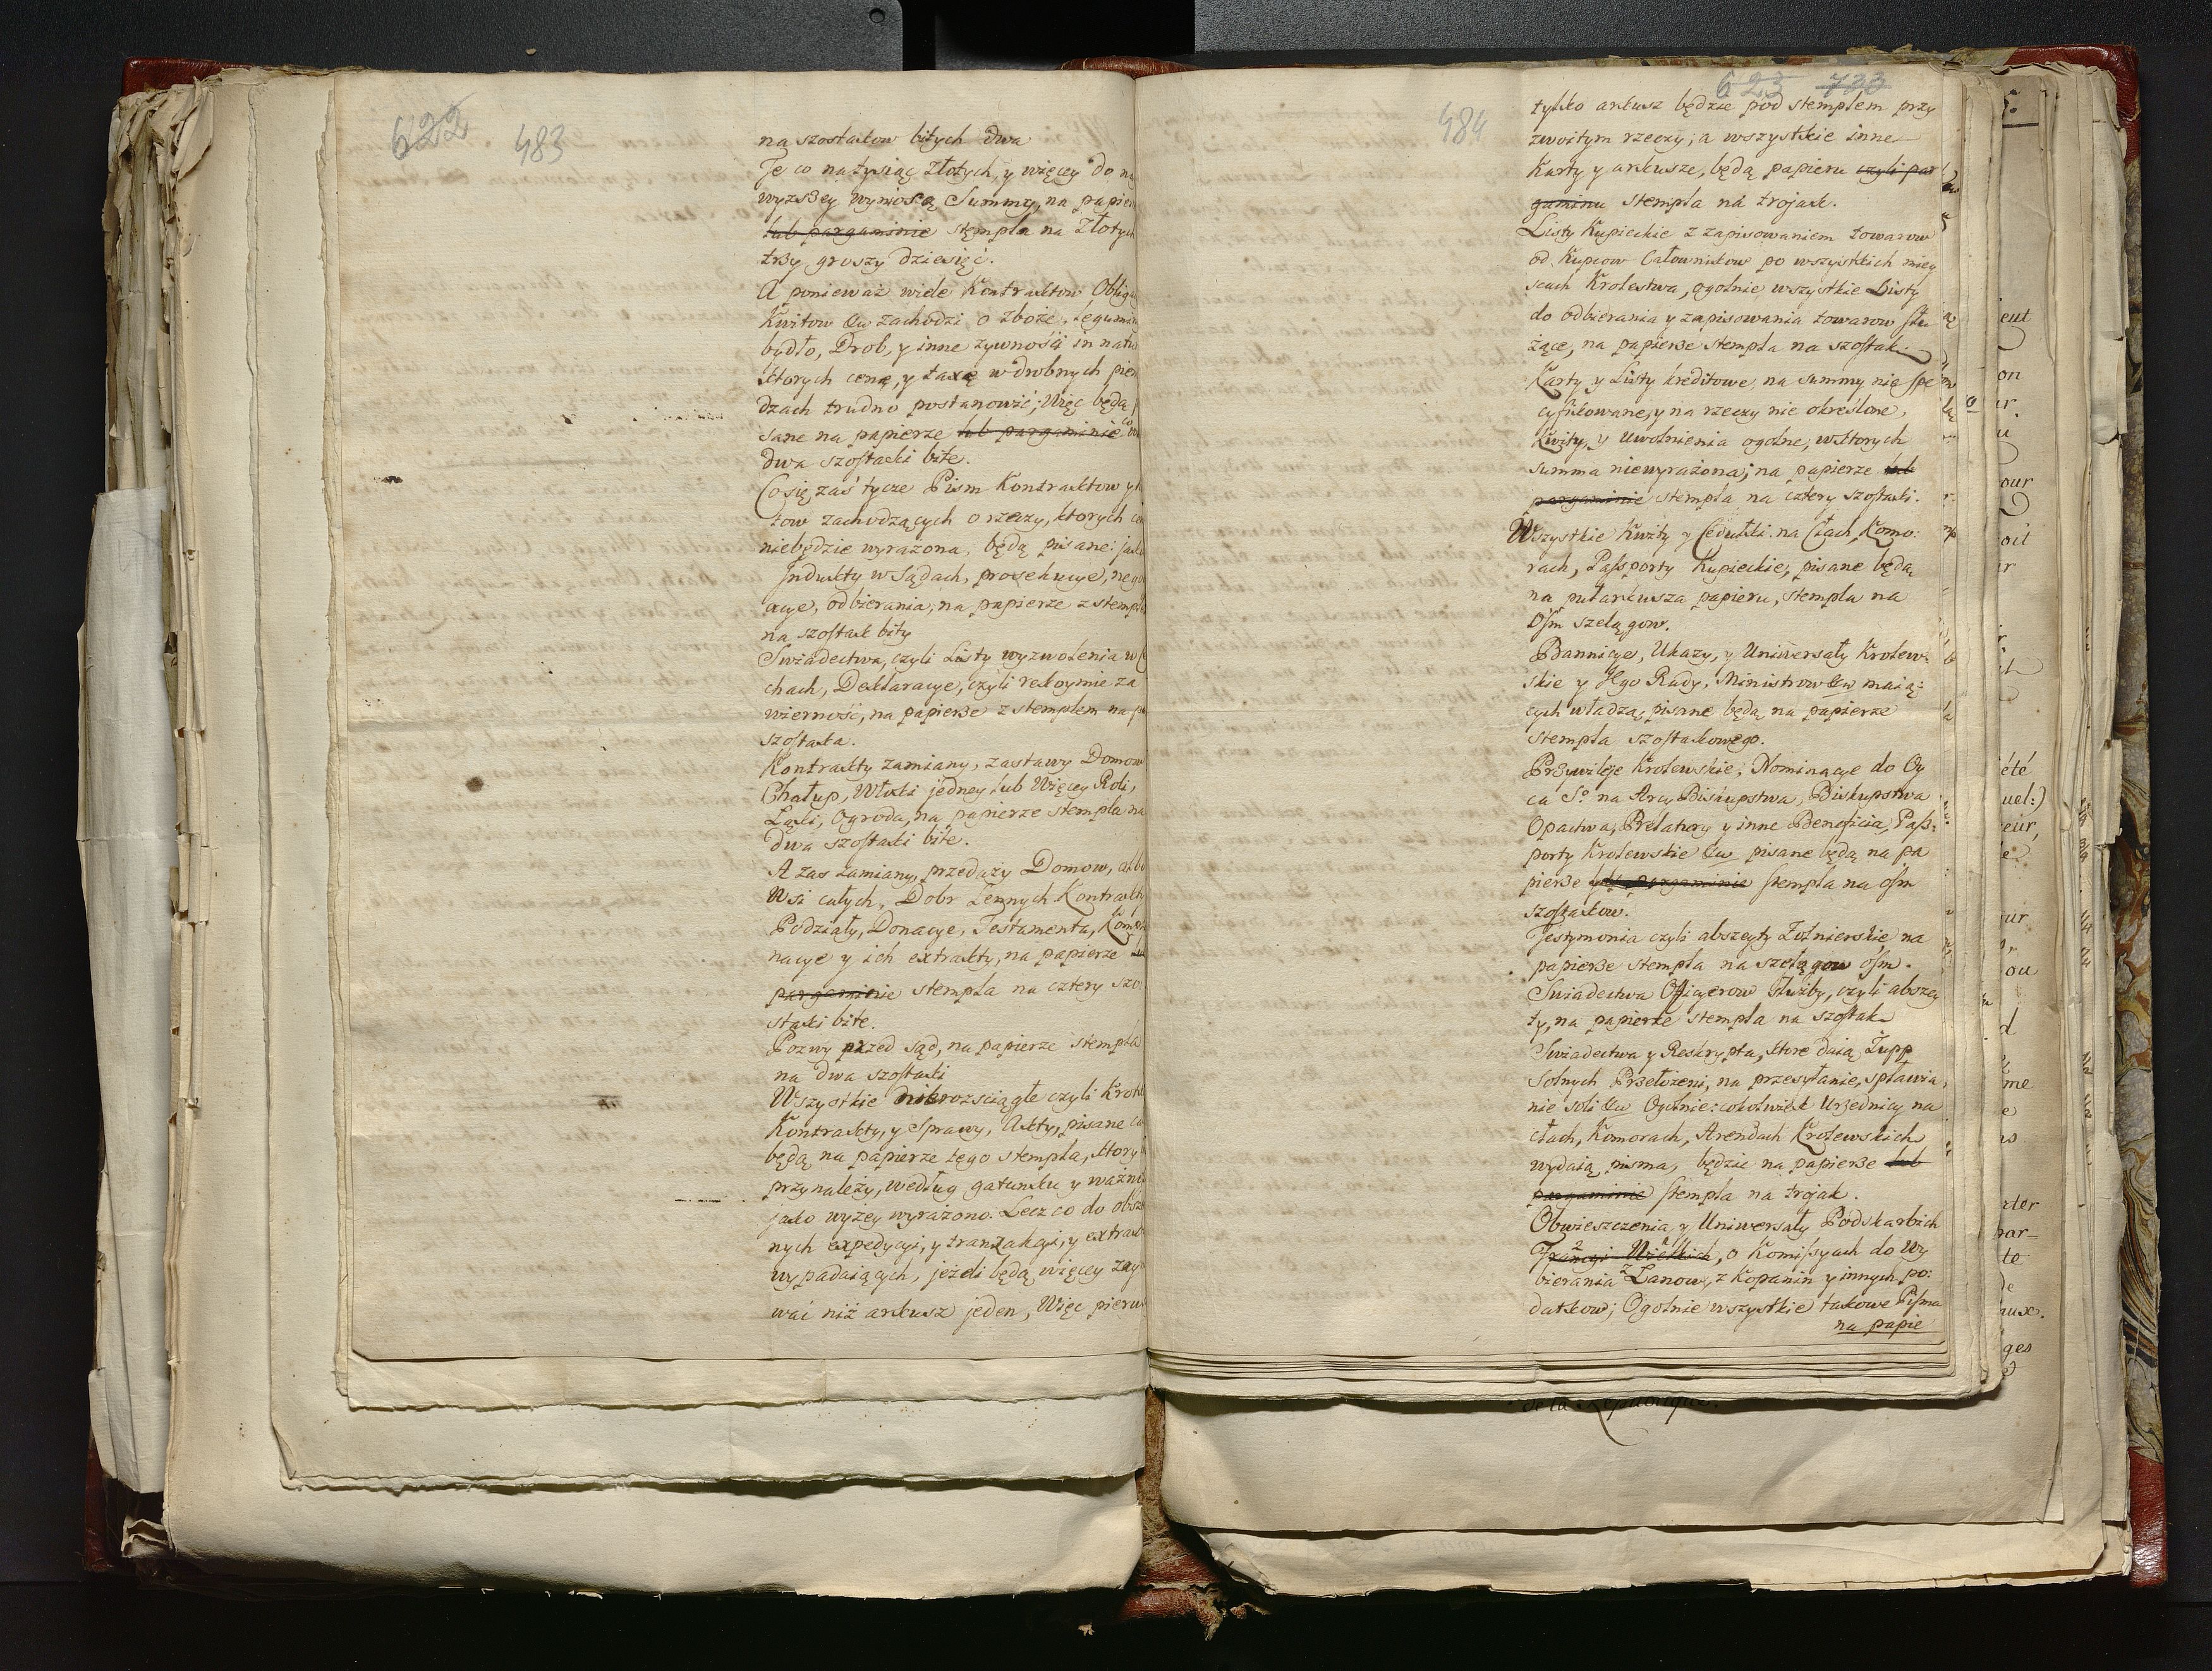 622 483
na szostakow bitych dwa
Te co na tysiąc Złotych, y więcey do na
wyzszey wyniosą Summy, na papier
lub pargaminie stępla na Złotych
trzy groszy dziesięć.
A ponieważ wiele Kontraktow, Oblig
Kwitow &c. zachodzi o zboże, legumin
bydło, Drob, y inne zywności in natu
ktorych cenę, y taxę w drobnych pien
dzach trudno postanowić; Więc będą
sane na papierze lub pargaminie co
dwa szostaki bite.
Co się zaś tycze Pism Kontraktow y k
tow zachodzących o rzeczy, ktorych ce
niebędzie wyrażona, będą pisane: jak
Indukty w Sądach, prosekucye, nego
acye, odbierania, na papierze z stempl
na szostak bity
Swiadectwa, czyli Listy wyzwolenia w C
chach, Deklaracye, czyli rekoymie za
wierność, na papierze z stemplem na p
szostaka.
Kontrakty zamiany, zastawy Domow
Chałup, Włoki jedney lub Więcey Roli,
Łąki, Ogroda, na papierze stempla na
dwa szostaki bite.
A zas zamiany, przedaży Domow, albo
Wsi całych, Dobr Lennych Kontrakty
Podziały, Donacye, Testamenta, Kom
nacye y ich extrakty, na papierze lub
pargaminie stempla na cztery szo
staki bite.
Pozwy przed sąd, na papierze stempla
na dwa szostaki
Wszystkie nierozsciągłe czyli Krotk
Kontrakty, y Sprawy, Akty, pisane
będą na papierze tego stempla, ktory
przynależy, według gatunku y ważno
jako wyżey wyrażono. Lecz co do obsz
nych expedycyi, y tranzakcyi, y extrak
wypadaiących, jeżeli będą więcey zay
wać niż arkusz jeden, Więc pierw
623 733
484
tylko arkusz będzie pod stemplem przy
zwoitym rzeczy; a wszystkie inne
Karty y arkusze, będą papieru czyli par
gaminu stempla na trojak.
Listy Kupieckie z zapisowaniem towarow
od Kupcow Całownikow po wszystkich miey
scach Krolestwa, ogolnie wszystkie Listy
do odbierania y zapisowania towarow słu
żące, na papierze stempla na szostak.
Karty y Listy kreditowe, na summy nie spe
cyfikowane, y na rzeczy nie określone,
Kwity, y Uwolnienia ogolne, w ktorych
summa niewyrażona; na papierze lub
pargaminie stempla na cztery szostaki.
Wszystkie Kwity y Cedułki na Cłach, Komo:
rach, Passporty Kupieckie, pisane będą
na pułarkusza papieru, stempla na
Osm szelągow.
Bannicye, Ukazy, y Uniwersały Krolew:
skie y Jego Rady, Ministrow &c. maią:
cych władzą, pisane będą na papierze
stempla szostakowego.
Przywileje Krolewskie, Nominacye do Oy
ca So na Arcy Biskupstwa, Biskupstwa
Opactwa, Prelatury y inne Beneficia, Pass:
porty Krolewskie &c. pisane będą na pa
pierze lub pargaminie stempla na osm
szostakow.
Testymonia czyli abszeyty Żołnierskie, na
papierze stempla na szelągow osm.
Swiadectwa Officyerow Służby, czyli abszey
ty, na papierze stempla na szostak
Swiadectwa y Reskrypta, ktore daią Żupp
Solnych Przełożeni, na przesyłanie, spławia
nie soli &c. Ogolnie: cokolwiek Urzędnicy na
cłach, Komorach, Arendach Krolewskich
wydaią pisma, będzie na papierze lub
pargaminie stempla na trojak.
Obwieszczenia, y Uniwersały Podskarbich
Wielkich, o Komissyach do Wy
bierania z Łanow, z Kopanin y innych po:
datkow; Ogolnie wszystkie takowe Pisma
na papie
de la Republique.